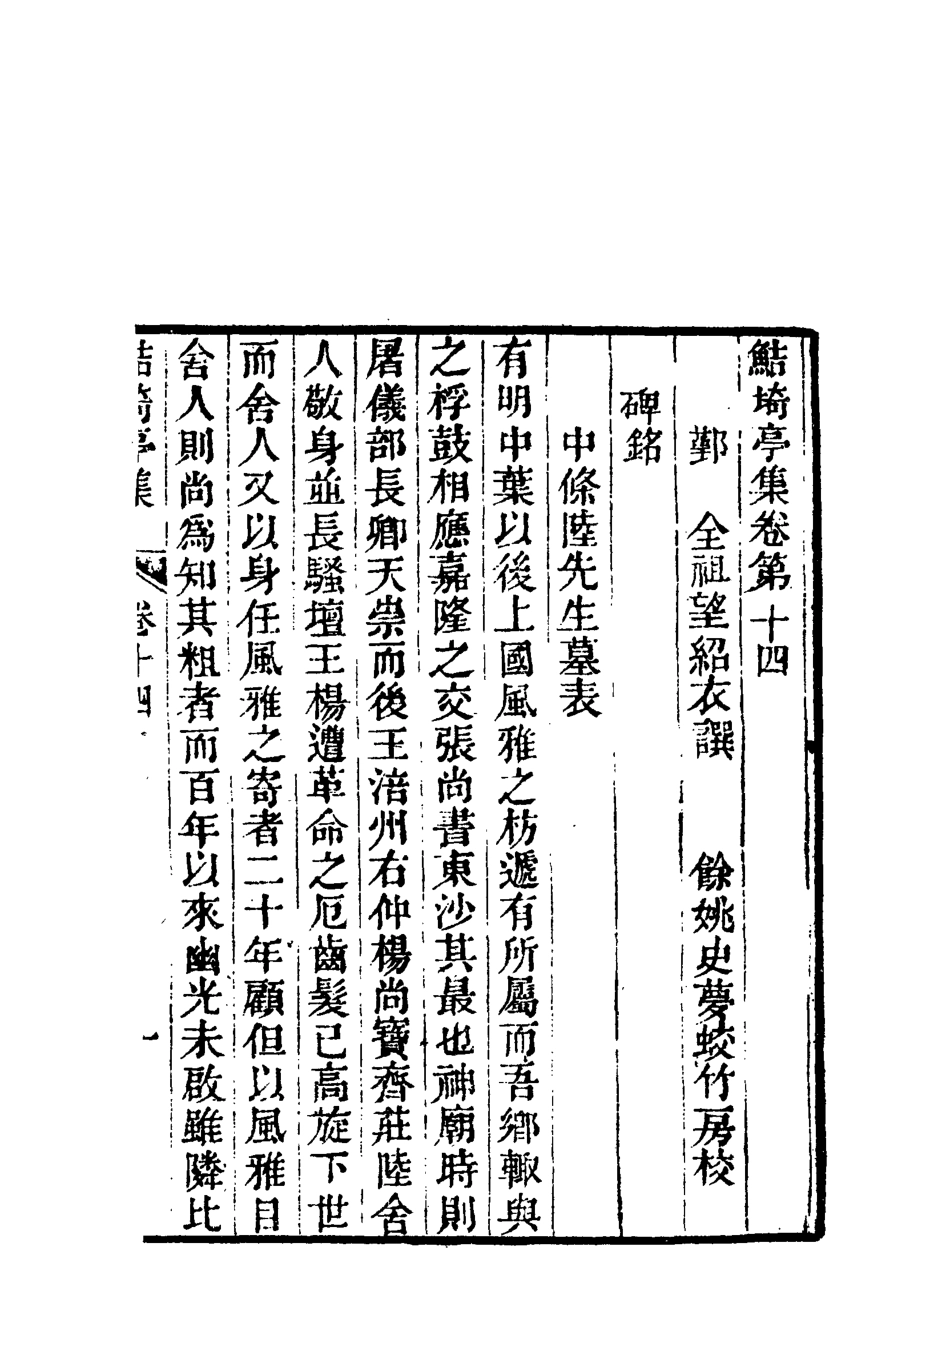 鮚埼亭集卷第十四
鄞 全祖望紹衣譔 餘姚史夢蛟竹房校
碑銘
中條陸先生墓表
有明中葉以後上國風雅之枋遞有所屬而吾鄉輙與
之桴鼓相應嘉隆之交張尚書東沙其最也神廟時則
屠儀部長卿天祟而後王涪州右仲楊尚寶齊莊陸舍
人敬身並長騷壇王楊遭革命之厄齒髮已高旋下世
而舍人又以身任風雅之寄者二十年顧但以風雅目
舍人則尚爲知其粗者而百年以來幽光未啟雖隣比
鮚埼亭集 卷十四 一